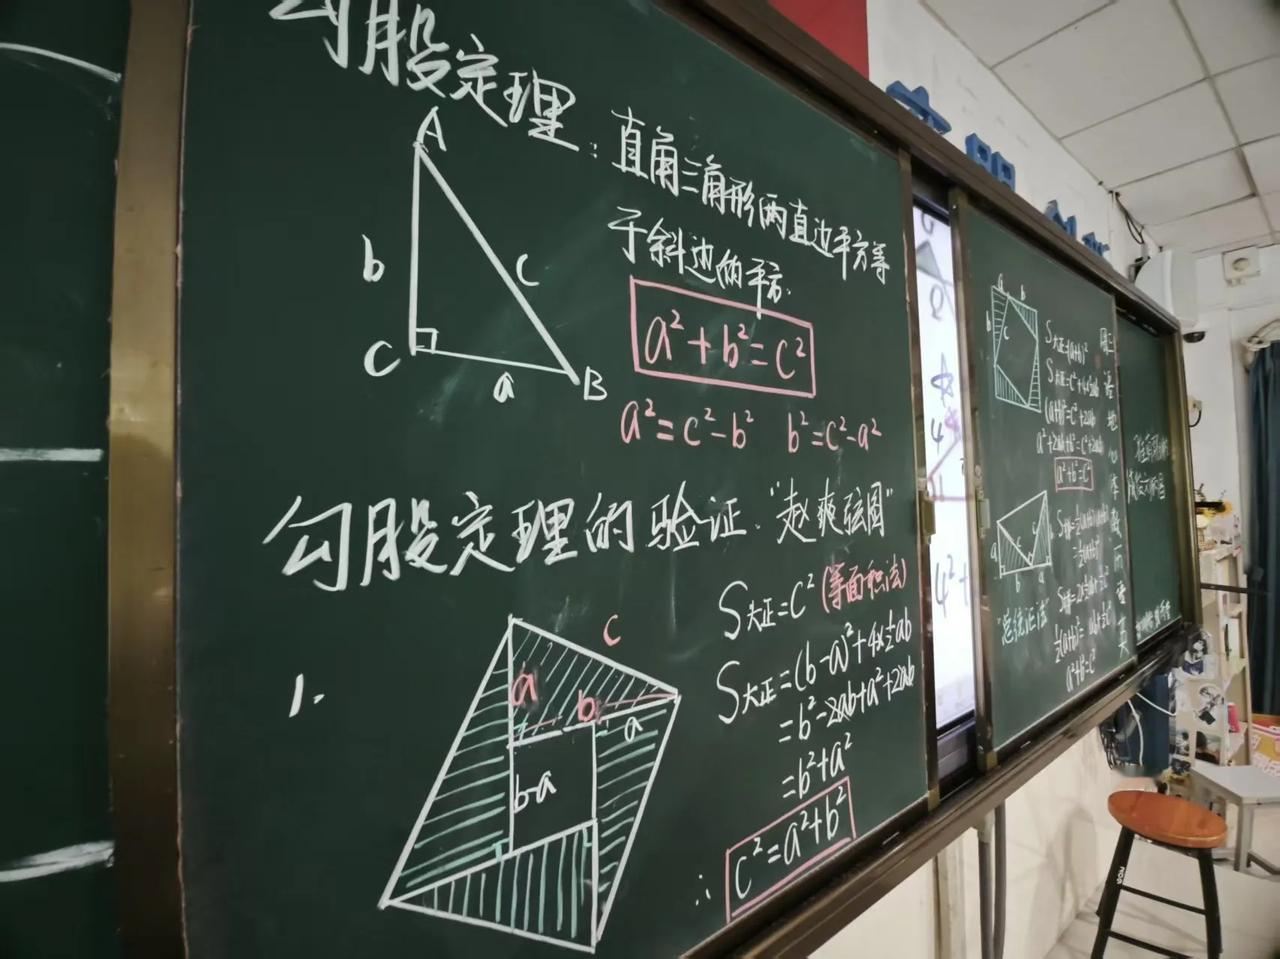 勾股定理：直角三角形两直边平方等
于斜边的平方.
A
b
c
C
a
B
a²+b²=c²
a²=c²-b² b²=c²-a²
勾股定理的验证."赵爽弦图"
1.
c
a
b
a
b-a
S大正=c²(等面积法)
S大正=(b-a)²+4×½ab
=b²-2ab+a²+2ab
=b²+a²
∴ c²=a²+b²
文明
a b
b
c
S大正=(a+b)²
(a+b)²=c²+2ab
a²+2ab+b²=c²+2ab
a²+b²=c²
a
c
c
b a
总统证法
½(a+b)²=ab+½c²
a²+b²=c²
4
4²+